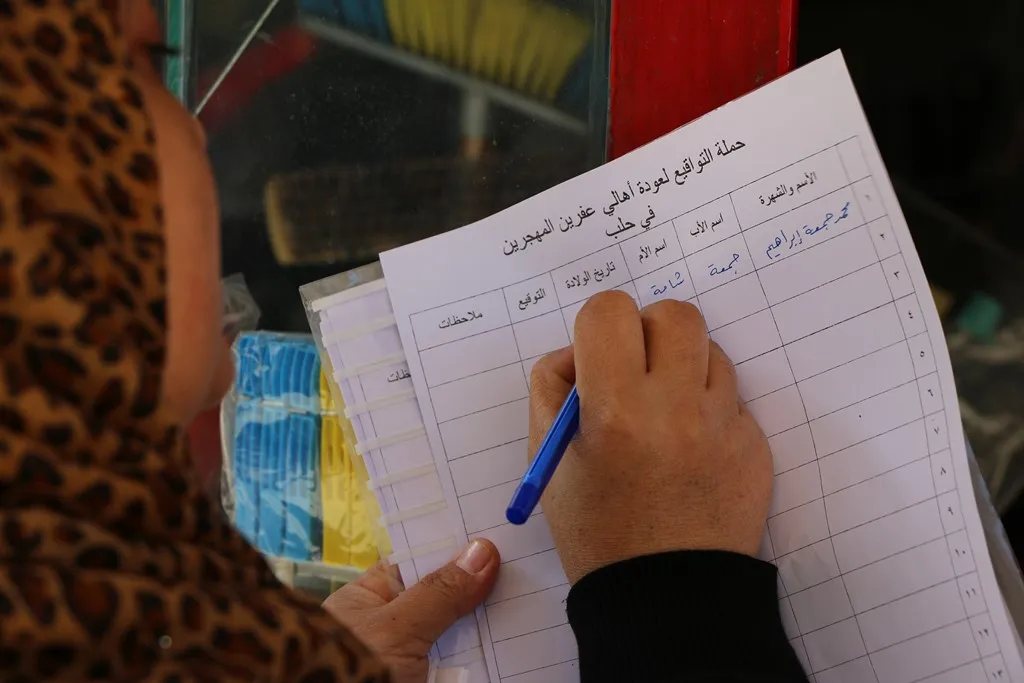 حملة التواقيع لعودة أهالي عفرين المهجرين
في حلب
الأسم والشهرة اسم الأب اسم الأم تاريخ الولادة التوقيع ملاحظات
١ محمد جمعة إبراهيم جمعة شامة
٢
٣
٤
٥
٦
٧
٨
٩
١٠
١١
١٢
١٣
ظات